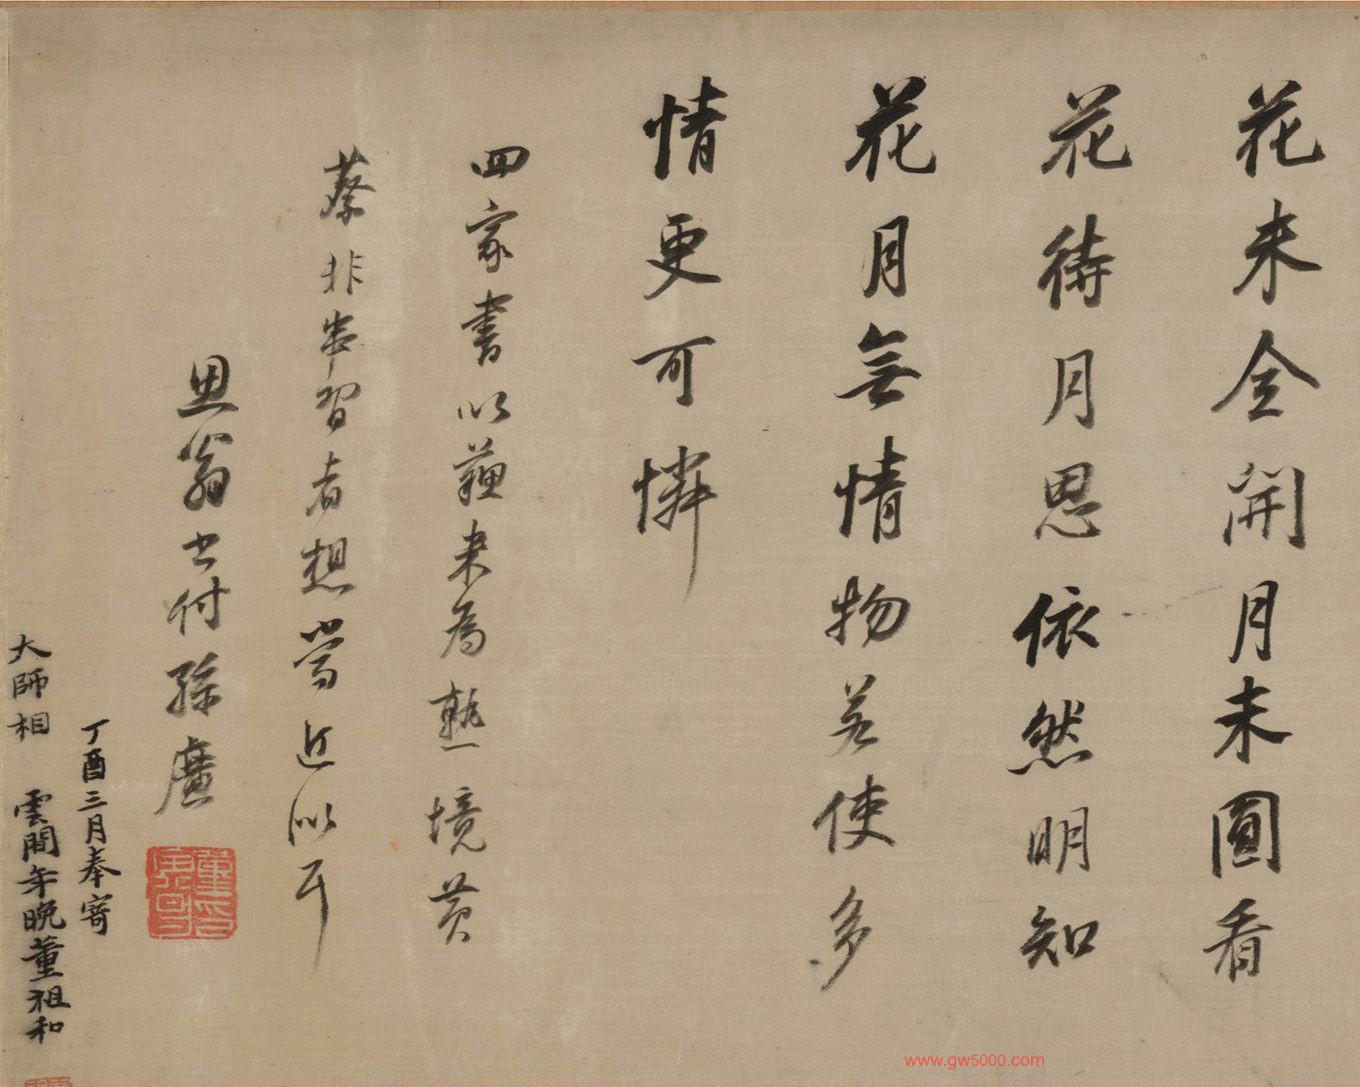 花未全開月未圓看
花待月思依然明知
花月無情物若使多
情更可憐
四家書以蘇米為熟境黄
蔡非串習者想當近似耳
思翁書付孫廣
丁酉三月奉寄
大師相 雲間年晚董祖和
董其昌印
www.gw5000.com